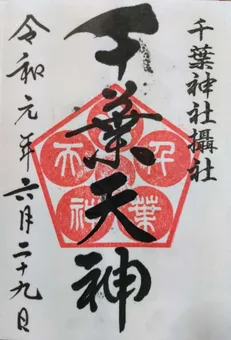 千葉神社攝社
千葉天神
令和元年六月二十九日
千葉天神